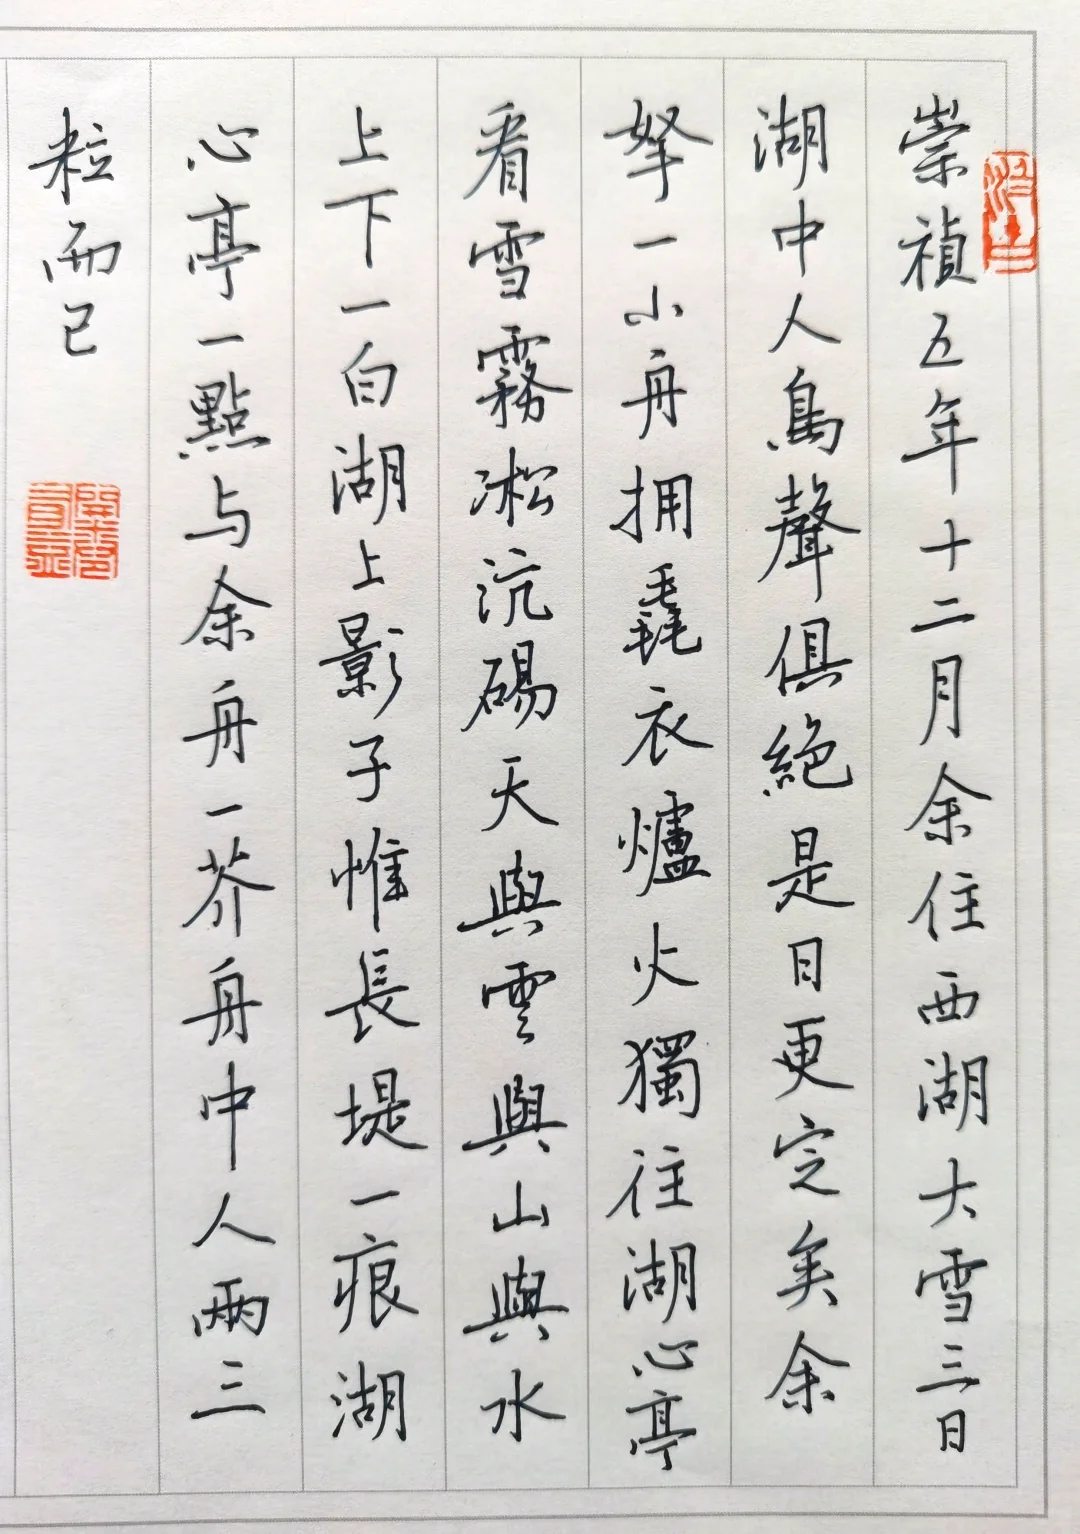 崇禎五年十二月余住西湖大雪三日
湖中人鳥聲俱絕是日更定矣余
拏一小舟拥毳衣爐火獨往湖心亭
看雪霧淞沆碭天與雲與山與水
上下一白湖上影子惟長堤一痕湖
心亭一點与余舟一芥舟中人兩三
粒而已